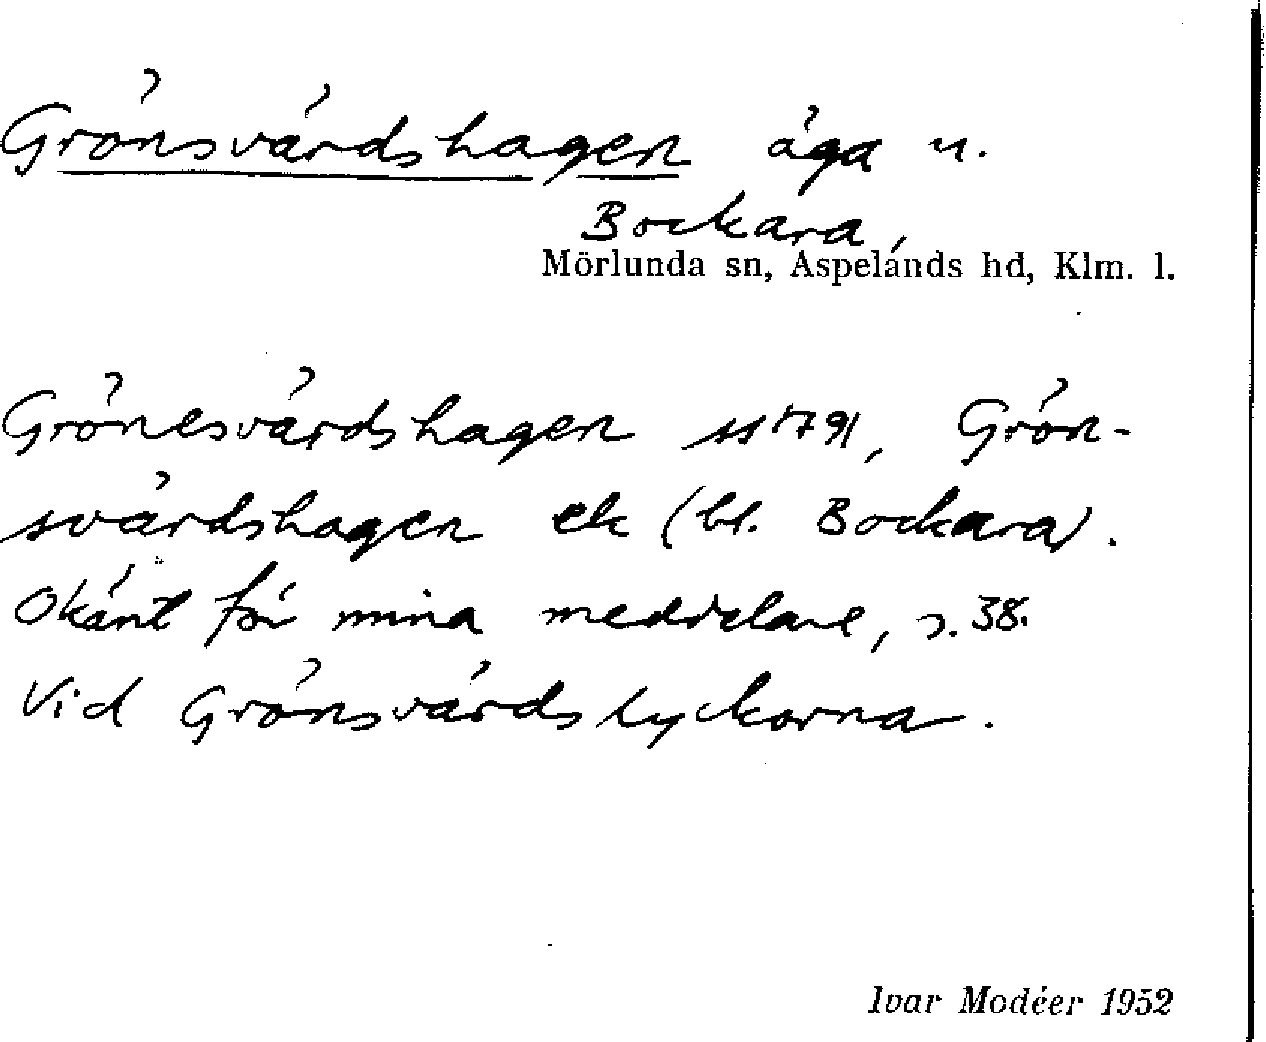 Grönsvärdshagen äga u.
Bockara,
Mörlunda sn, Aspelands hd, Klm. l.
Grönesvärdshagen ss 1791, Grön-
svärdshagen ek (bl. Bockara).
Okänt för mina meddelare, s. 38.
Vid Grönsvärdslyckorna.
Ivar Modéer 1952